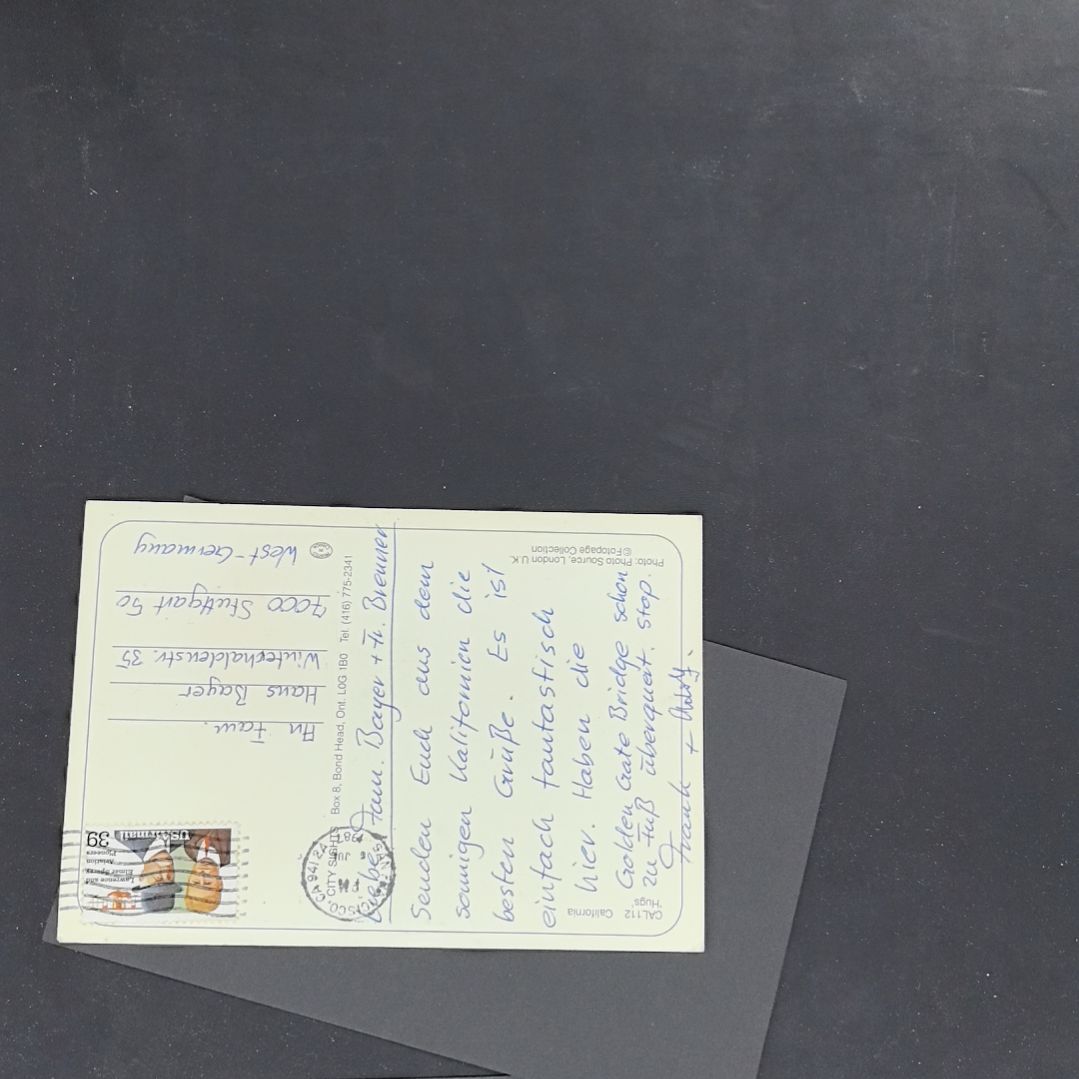 Liebe Fam. Bayer + Fr. Brenner
Senden Euch aus dem
sonnigen Kalifornien die
besten Grüße. Es ist
einfach fantastisch
hier. Haben die
Golden Gate Bridge schon
zu Fuß überquert. Stop.
Frank +
An Fam.
Hans Bayer
Winterhaldenstr. 35
7000 Stuttgart 50
West-Germany
CITY SIGHTS Box 8, Bond Head, Ont. L0G 1B0 Tel. (416) 775-2341
CAL112 California
'Hugs'
Photo: Photo Source, London U.K.
©Fotopage Collection
39
USAirmail
Lawrence and
Elmer Sperry
Aviation
Pioneers
CA 941 24
1987